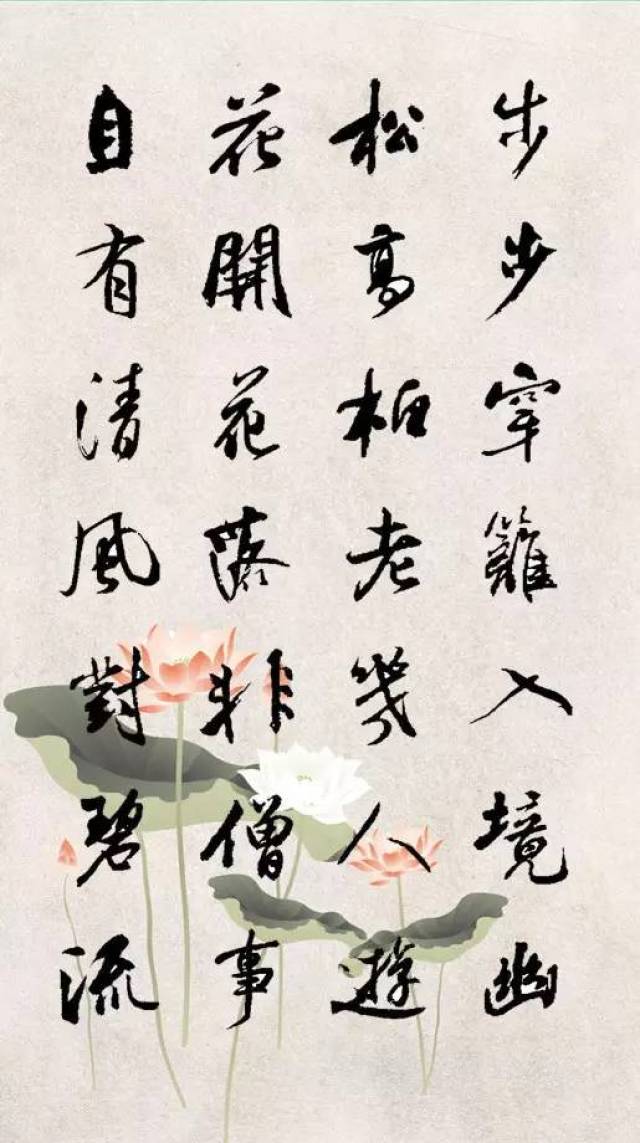 步步穿籬入境幽
松高柏老幾人遊
花開花落非僧事
自有清風對碧流